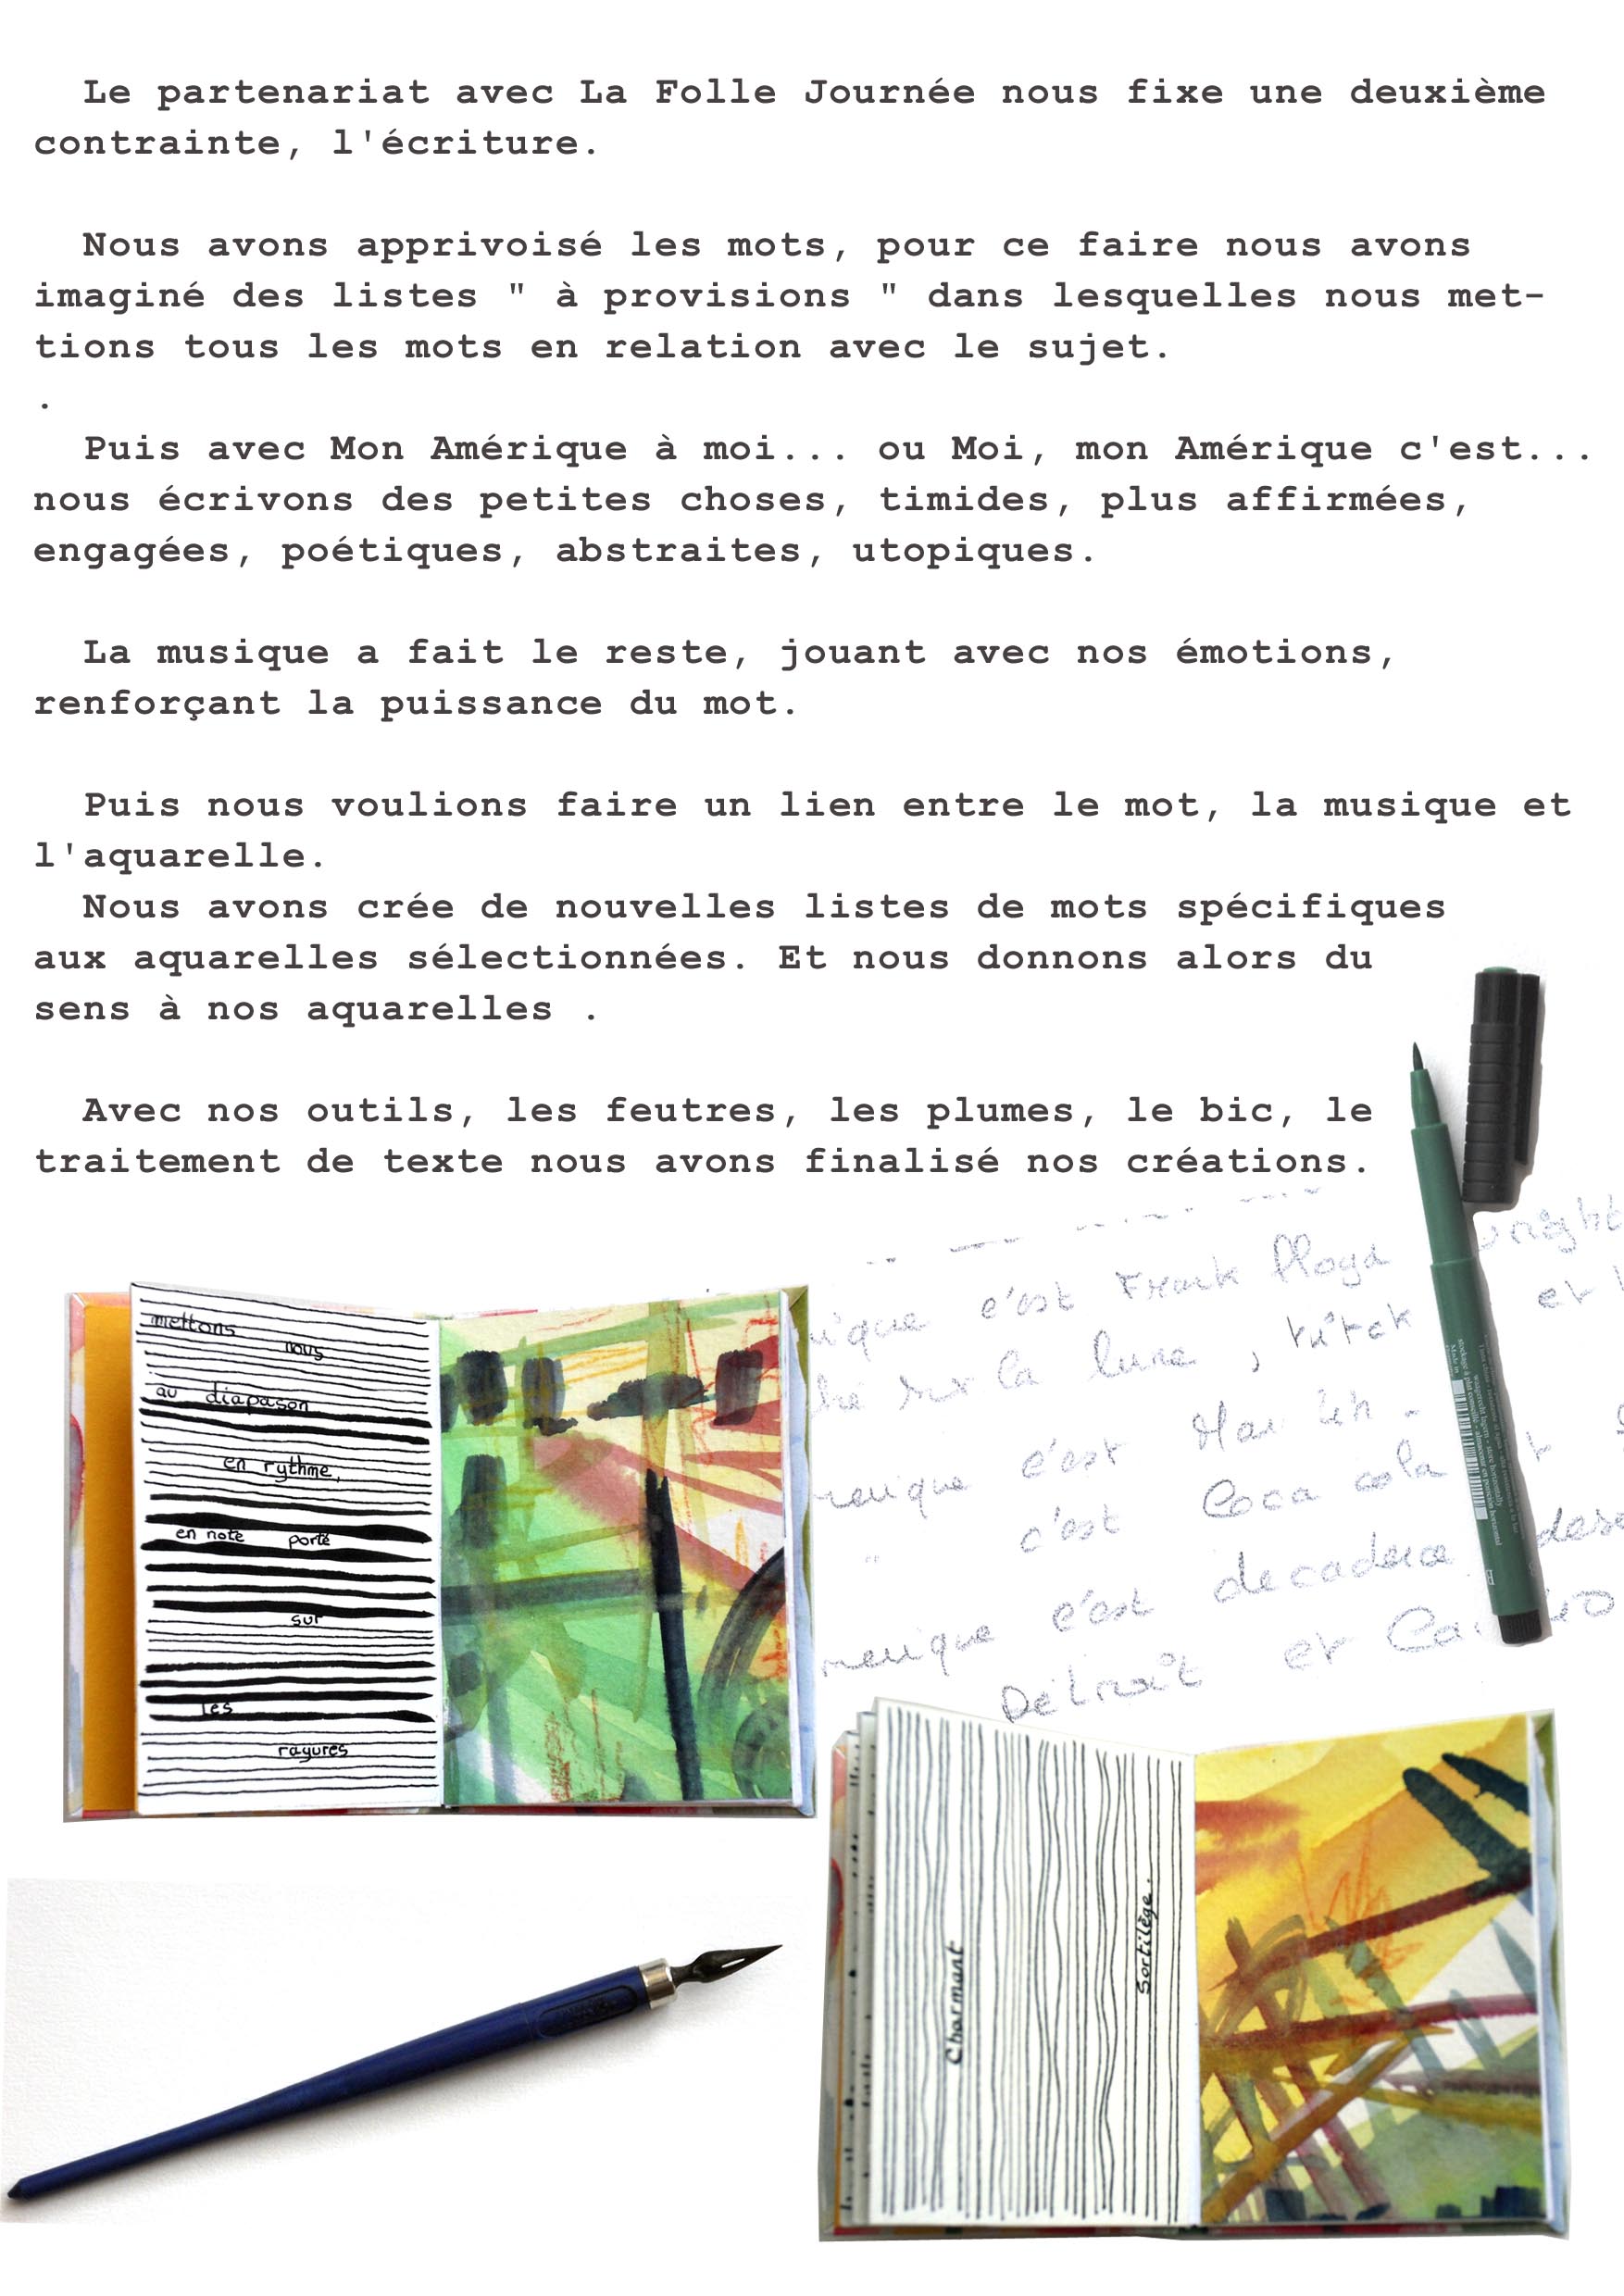 Le partenariat avec La Folle Journée nous fixe une deuxième
contrainte, l'écriture.
Nous avons apprivoisé les mots, pour ce faire nous avons
imaginé des listes " à provisions " dans lesquelles nous met-
tions tous les mots en relation avec le sujet.
.
Puis avec Mon Amérique à moi... ou Moi, mon Amérique c'est...
nous écrivons des petites choses, timides, plus affirmées,
engagées, poétiques, abstraites, utopiques.
La musique a fait le reste, jouant avec nos émotions,
renforçant la puissance du mot.
Puis nous voulions faire un lien entre le mot, la musique et
l'aquarelle.
Nous avons crée de nouvelles listes de mots spécifiques
aux aquarelles sélectionnées. Et nous donnons alors du
sens à nos aquarelles .
Avec nos outils, les feutres, les plumes, le bic, le
traitement de texte nous avons finalisé nos créations.
mettons
nous
au diapason
en rythme,
en note porté
sur
les
rayures
c'est Frank Lloyd
sur la lune ,
c'est
c'est Coca cola
c'est
Détroit et
Charmant
Sortilège.